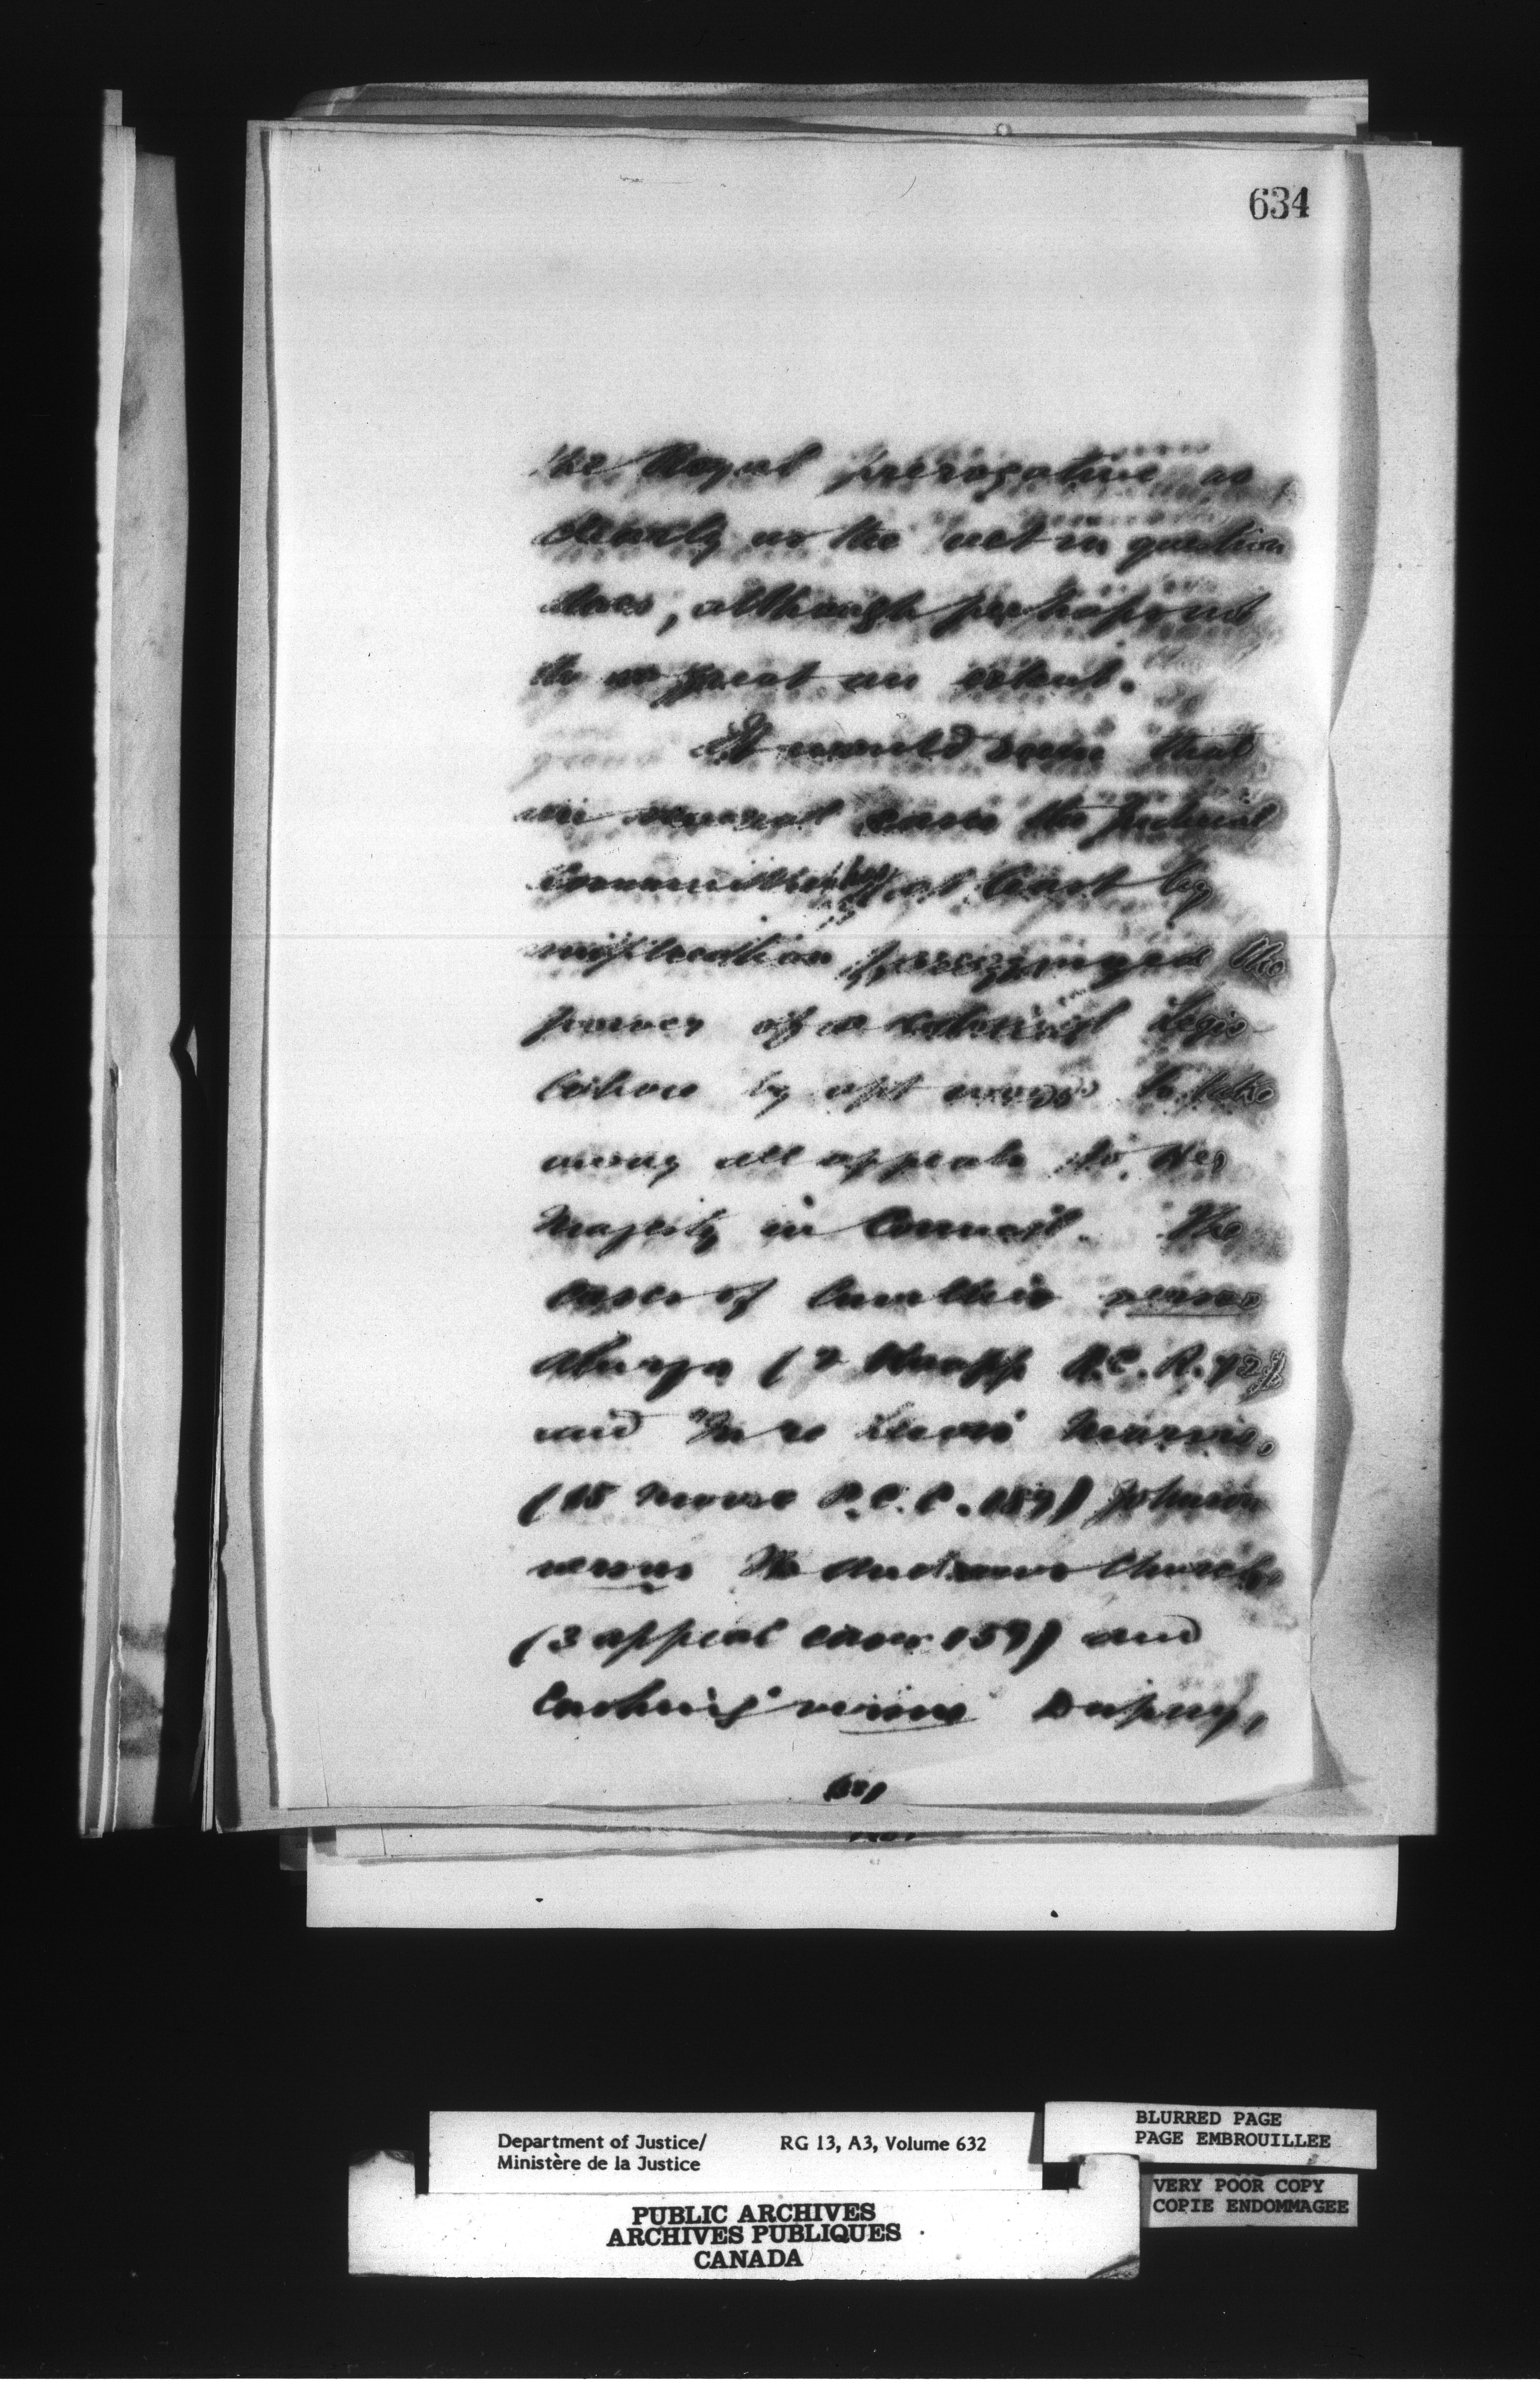 634
the Royal prerogative as
directly as the act in question
does, although perhaps not
to so great an extent.
It would seem that
in several cases the Judicial
Committee has at least by
implication recognized the
power of a colonial Legis-
lature by apt words to take
away all appeals to Her
Majesty in Council. The
cases of Cuvillier versus
Aylwin (2 Knapp P.C.R. 72)
and In re Louis Marois,
(15 Moore P.C.C. 189) Johnson
versus St Andrews Church
(3 appeal cases 159) and
Cushing versus Dupuy,
Department of Justice/
Ministère de la Justice
RG 13, A3, Volume 632
BLURRED PAGE
PAGE EMBROUILLEE
VERY POOR COPY
COPIE ENDOMMAGEE
PUBLIC ARCHIVES
ARCHIVES PUBLIQUES
CANADA